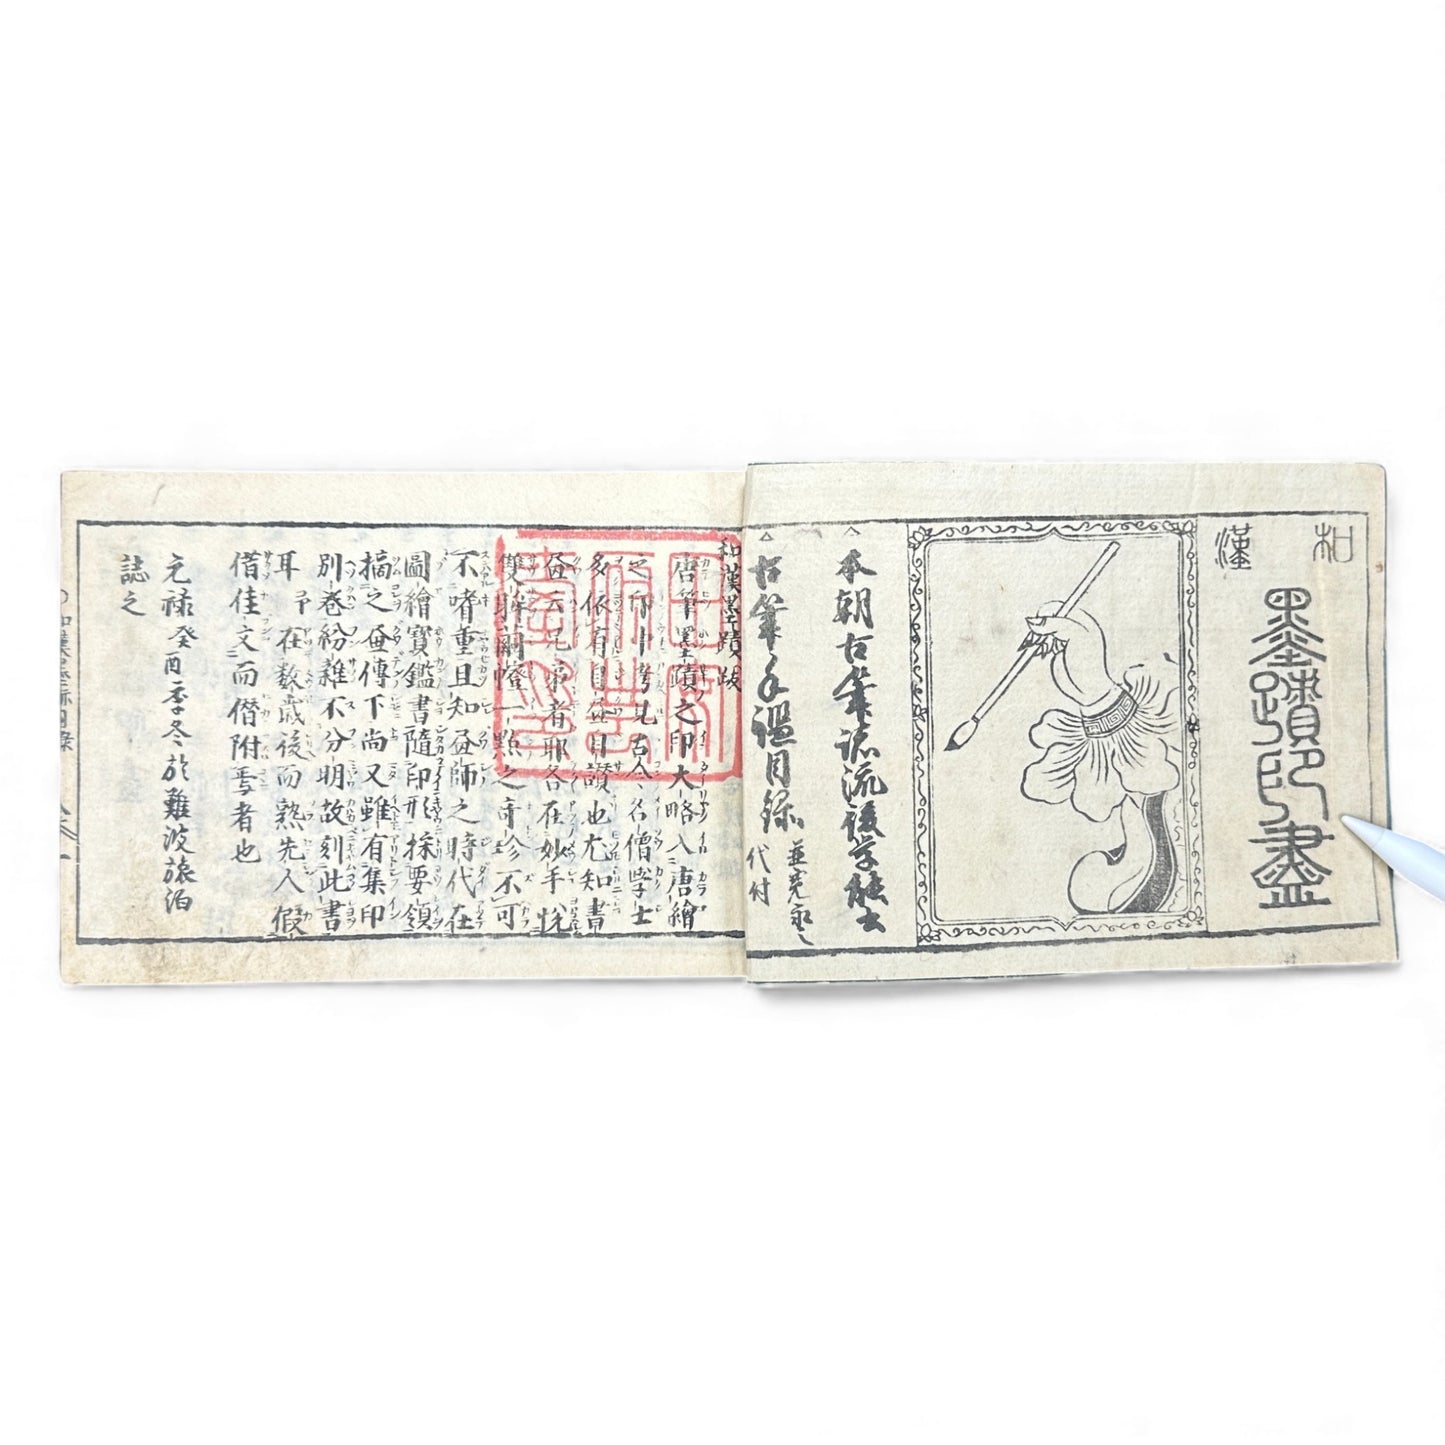 和
漢
墨蹟印盡
本朝古筆諸流後学能士
古筆手鑑目録
代付
和漢墨蹟跋
唐筆墨蹟之印大略入唐繪
之印中考見古今名僧學士
多依有自畫自讃也尤知書
畫云兄弟者耶各在妙手悦
雙揮繭幢一點之奇珍不可
不嗜重且知畫師之時代在
圖繪寶鑑書隨印形採要領
摘之畫傳下尚又雖有集印
別卷紛雜不分明故刻此書
耳予在数歳後而熟先人假
借佳文而僭附焉者也
元禄癸酉季冬於難波旅泊
誌之